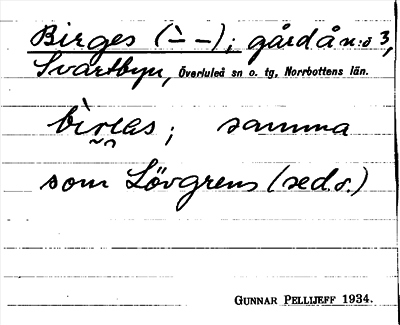 Birges (`– –); gård å n:o 3,
Svartbyn, Överluleå sn o. tg, Norrbottens län.
bìrₑas; samma
som Lövgrens (se d.o.)
GUNNAR PELLIJEFF 1934.